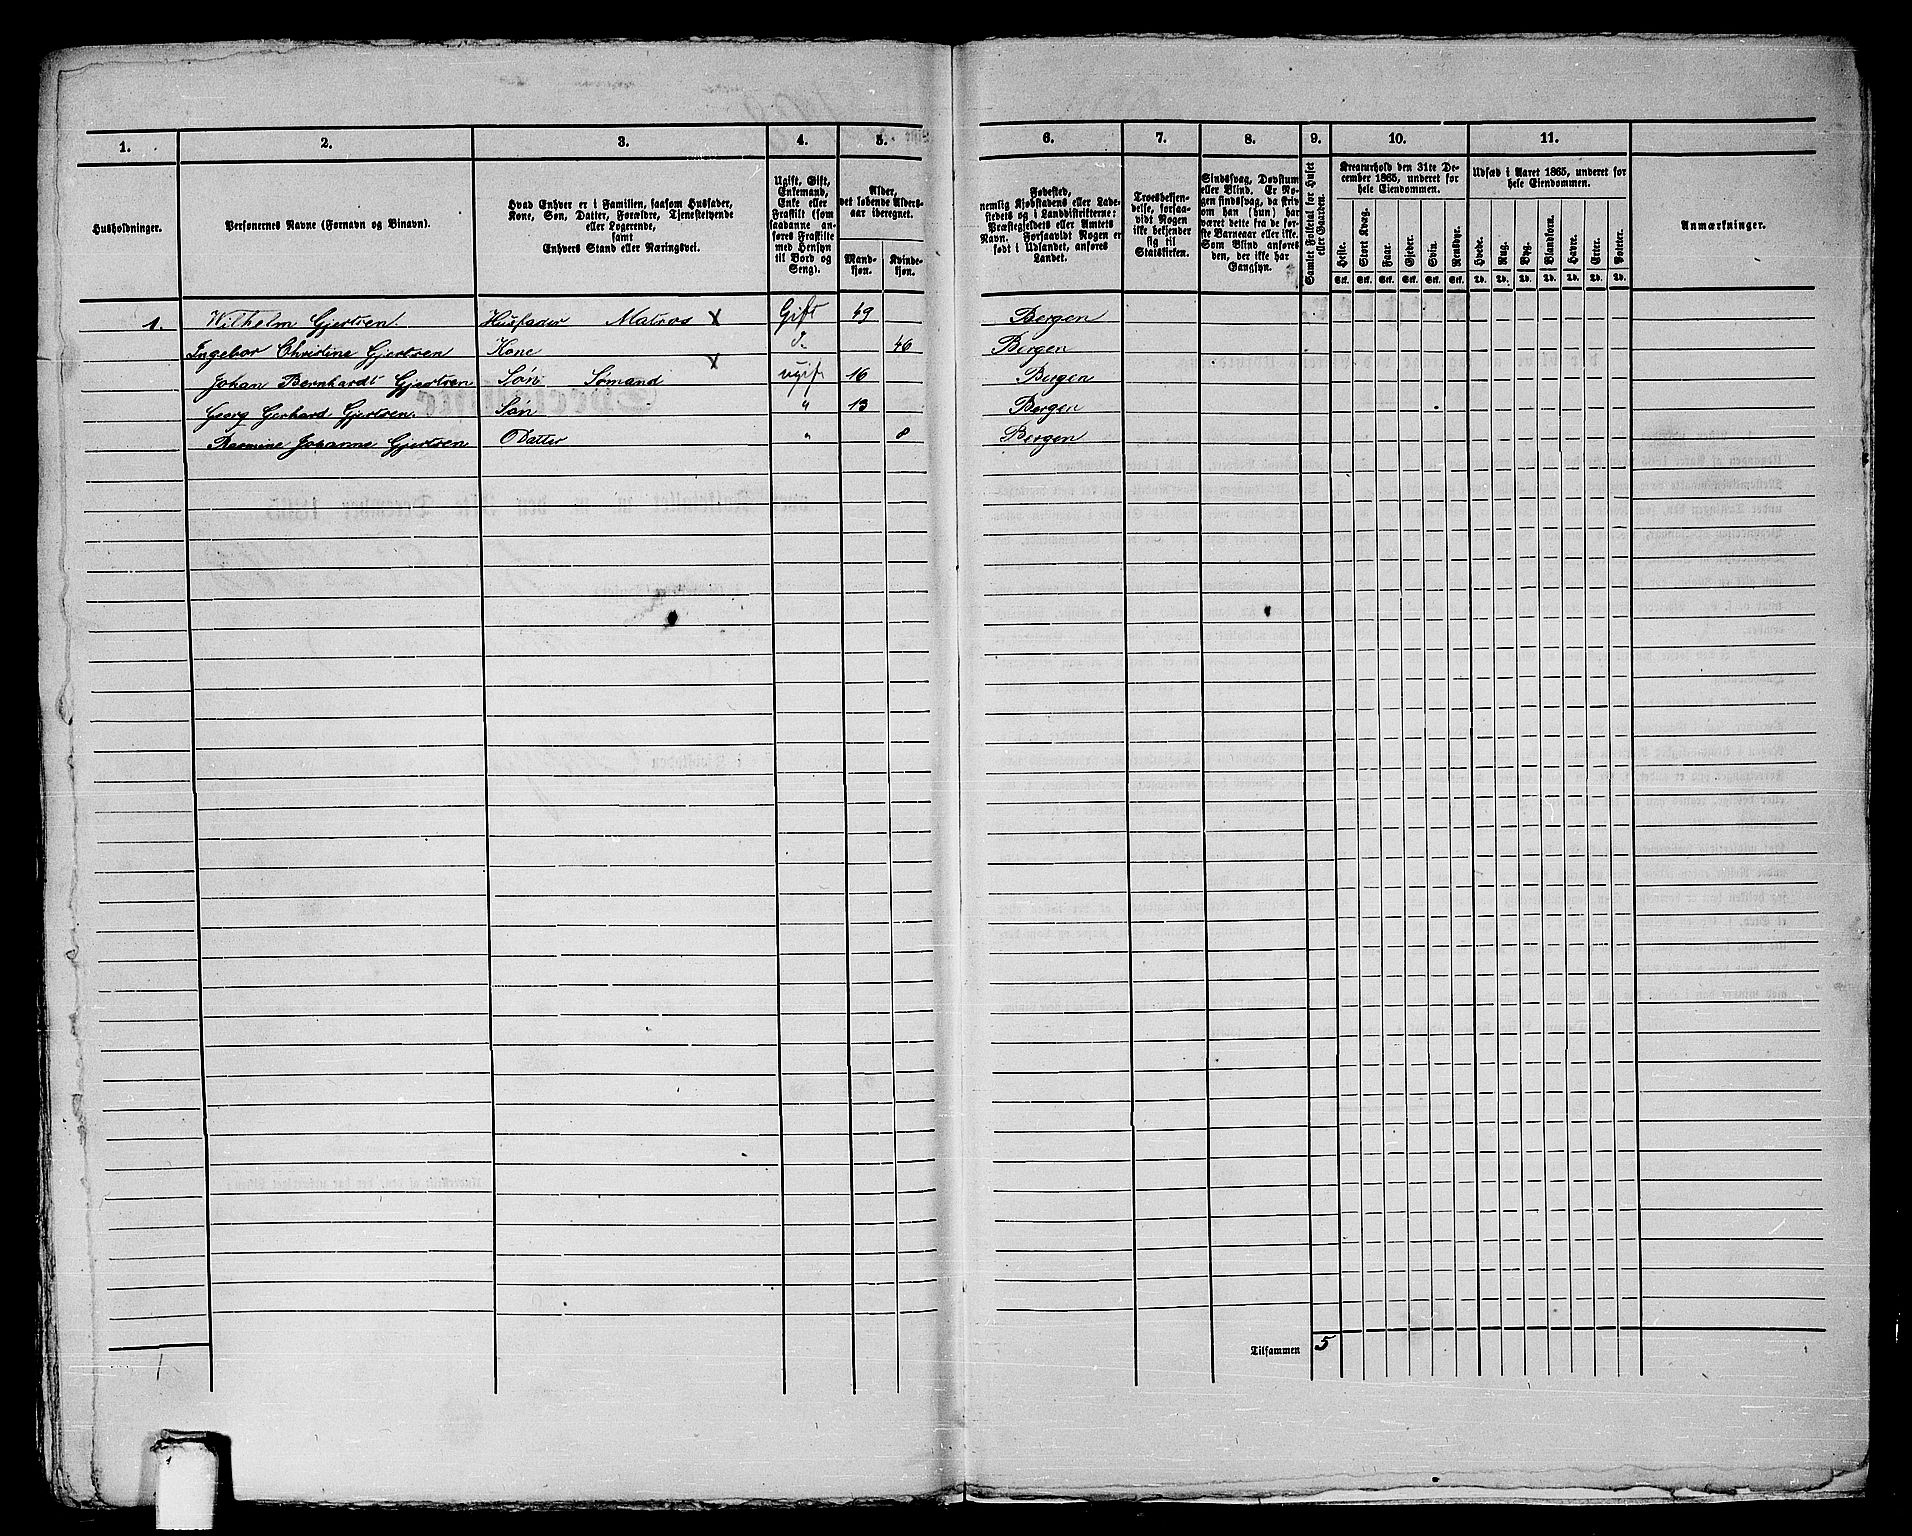 1.
2.
3.
4.
5.
Husholdninger.
Personernes Navne (Fornavn og Binavn).
Hvad Enhver er i Familien, saasom Husfader,
Kone, Søn, Datter, Forældre, Tjenestetyende
eller Logerende,
samt
Enhvers Stand eller Næringsvei.
Ugift, Gift,
Enkemand,
Enke eller
Fraskilt (som
saadanne an-
føres Fraskilte
med Hensyn
til Bord og
Seng).
Alder,
det løbende Alders-
aar iberegnet.
Mand-
kjøn.
Kvinde-
kjøn.
1. Wilhelm Gjertsen. Husfader Matros X Gift 49
Ingebor Christine Gjertsen Kone 46
Johan Bernhardt Gjertsen Søn Sømand X ugift 16
Georg Gerhard Gjertsen. Søn " 13
Rasmine Johanne Gjertsen Datter " 8
1
6.
7.
8.
9.
10.
11.
Fødested,
nemlig Kjøbstadens eller Lade-
stedets og i Landdistrikterne:
Præstegjeldets eller Amtets
Navn. Forsaavidt Nogen er
født i Udlandet, anføres
Landet.
Troesbekjen-
delse, forsaa-
vidt Nogen
ikke bekjender
sig til
Statskirken.
Sindssvag, Døvstum
eller Blind. Er No-
gen sindssvag, da skriv
om han (hun) har
været dette fra de før-
ste Barneaar eller ikke.
Som Blind anføres
den, der ikke har
Gangsyn.
Samlet Folketal for Huset
eller Gaarden.
Kreaturhold den 31te De-
cember 1865, underet for
hele Eiendommen.
Heste. Stort Kvæg. Faar. Gjeder. Svin. Rensdyr.
Stk. Stk. Stk. Stk. Stk. Stk.
Udsæd i Aaret 1865, underet for
hele Eiendommen.
Hvede. Rug. Byg. Blandkorn. Havre. Erter. Poteter.
Td. Td. Td. Td. Td. Td. Td.
Anmærkninger.
Bergen
Bergen
Bergen
Bergen
Bergen
Tilsammen 5